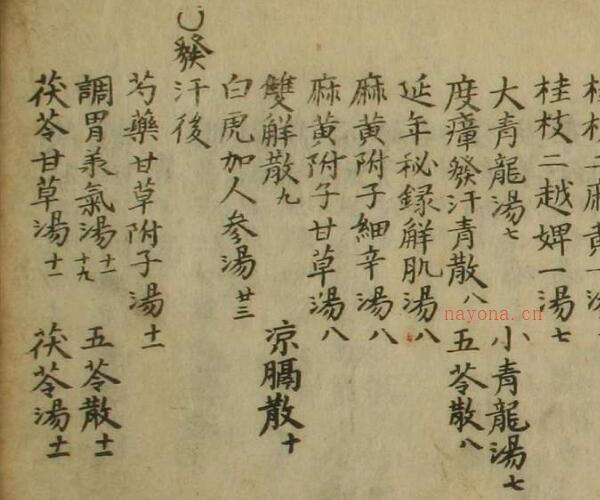 桂枝二麻黄一湯
桂枝二越婢一湯七
大青龍湯七 小青龍湯七
度瘴發汗青散八 五苓散八
延年秘録解肌湯八
麻黄附子細辛湯八
麻黄附子甘草湯八
雙解散九 凉膈散十
白虎加人參湯廿三
〇發汗後
芍藥甘草附子湯十一
調胃承氣湯十一十九 五苓散十一
茯苓甘草湯十一 茯苓湯十一
nayona.cn